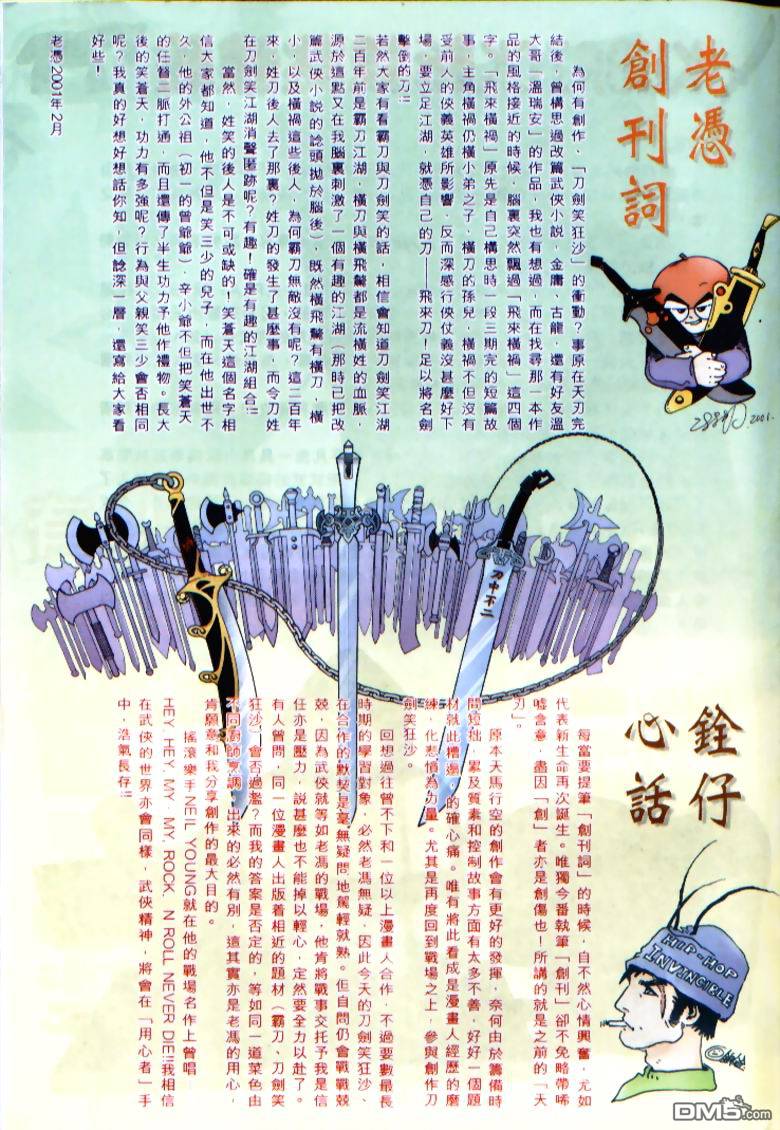 老憑
創刊詞
為何有創作，「刀劍笑狂沙」的衝動？事原在天刃完
結後，曾構思過改篇武俠小說，金庸、古龍，還有好友溫
大哥「溫瑞安」的作品，我也有想過，而在找尋那一本作
品的風格接近的時候，腦裏突然飄過「飛來橫禍」這四個
字。「飛來橫禍」原先是自己構思時一段三期完的短篇故
事，主角橫禍仍橫小弟之子，橫刀的孫兒，橫禍不但沒有
受前人的俠義英雄所影響，反而深感行俠仗義沒甚麼好下
場，要立足江湖，就憑自己的刀——飛來刀！足以將名劍
擊倒的刀!!
若然大家有看霸刀與刀劍笑的話，相信會知道刀劍笑江湖
二百年前是霸刀江湖，橫刀與橫飛鷲都是流橫姓的血脈，
源於這點又在我腦裏刺激了一個有趣的江湖（那時已把改
篇武俠小說的諗頭拋於腦後），既然橫飛鷲有橫刀，橫
小，以及橫禍這些後人，為何霸刀無敵沒有呢？這二百年
來，姓刀後人去了那裏？姓刀的發生了甚麼事，而令刀姓
在刀劍笑江湖消聲匿跡呢？有趣！確是有趣的江湖組合!!
當然，姓笑的後人是不可或缺的！笑蒼天這個名字相
信大家都知道，他不但是笑三少的兒子，而在他出世不
久，他的外公祖（初一的曾爺爺），辛小爺不但把笑蒼天
的任督二脈打通，而且還傳了半生功力予他作禮物。長大
後的笑蒼天，功力有多強呢？行為與父親笑三少會否相同
呢？我真的好想好想話你知，但諗深一層，還寫給大家看
好些！
老憑2001年2月
2001.
刀中不二
銓仔
心話
每當要提筆「創刊詞」的時候，自不然心情興奮，尤如
代表新生命再次誕生。唯獨今番執筆「創刊」卻不免略帶唏
噓含意，盡因「創」者亦是創傷也！所講的就是之前的「天
刃」。
原本天馬行空的創作會有更好的發揮，奈何由於籌備時
間短拙，累及質素和控制故事方面有太多不善，好好一個題
材就此糟過，的確心痛。唯有將此看成是漫畫人經歷的磨
練，化悲憤為力量。尤其是再度回到戰場之上，參與創作刀
劍笑狂沙。
回想過往曾不下和一位以上漫畫人合作，不過要數最長
時期的學習對象，必然老馮無疑，因此今天的刀劍笑狂沙、
在合作的默契是毫無疑問地駕輕就熟。但自問仍會戰戰兢
兢，因為武俠就等如老馮的戰場，他肯將戰事交托予我是信
任亦是壓力，説甚麼也不能掉以輕心，定然要全力以赴了。
有人曾問，同一位漫畫人出版着相近的題材（霸刀、刀劍笑
狂沙），會否過濫？而我的答案是否定的，等如同一道菜色由
不同廚師烹調，出來的必然有別，這其實亦是老馮的用心，
肯願意和我分享創作的最大目的。
搖滾樂手NEIL YOUNG就在他的戰場名作上曾唱
HEY, HEY, MY, MY, ROCK N ROLL NEVER DIE!!!我相信
在武俠的世界亦會同樣，武俠精神，將會在「用心者」手
中，浩氣長存!!
HIP-HOP
INVINCIBLE
DM5.com